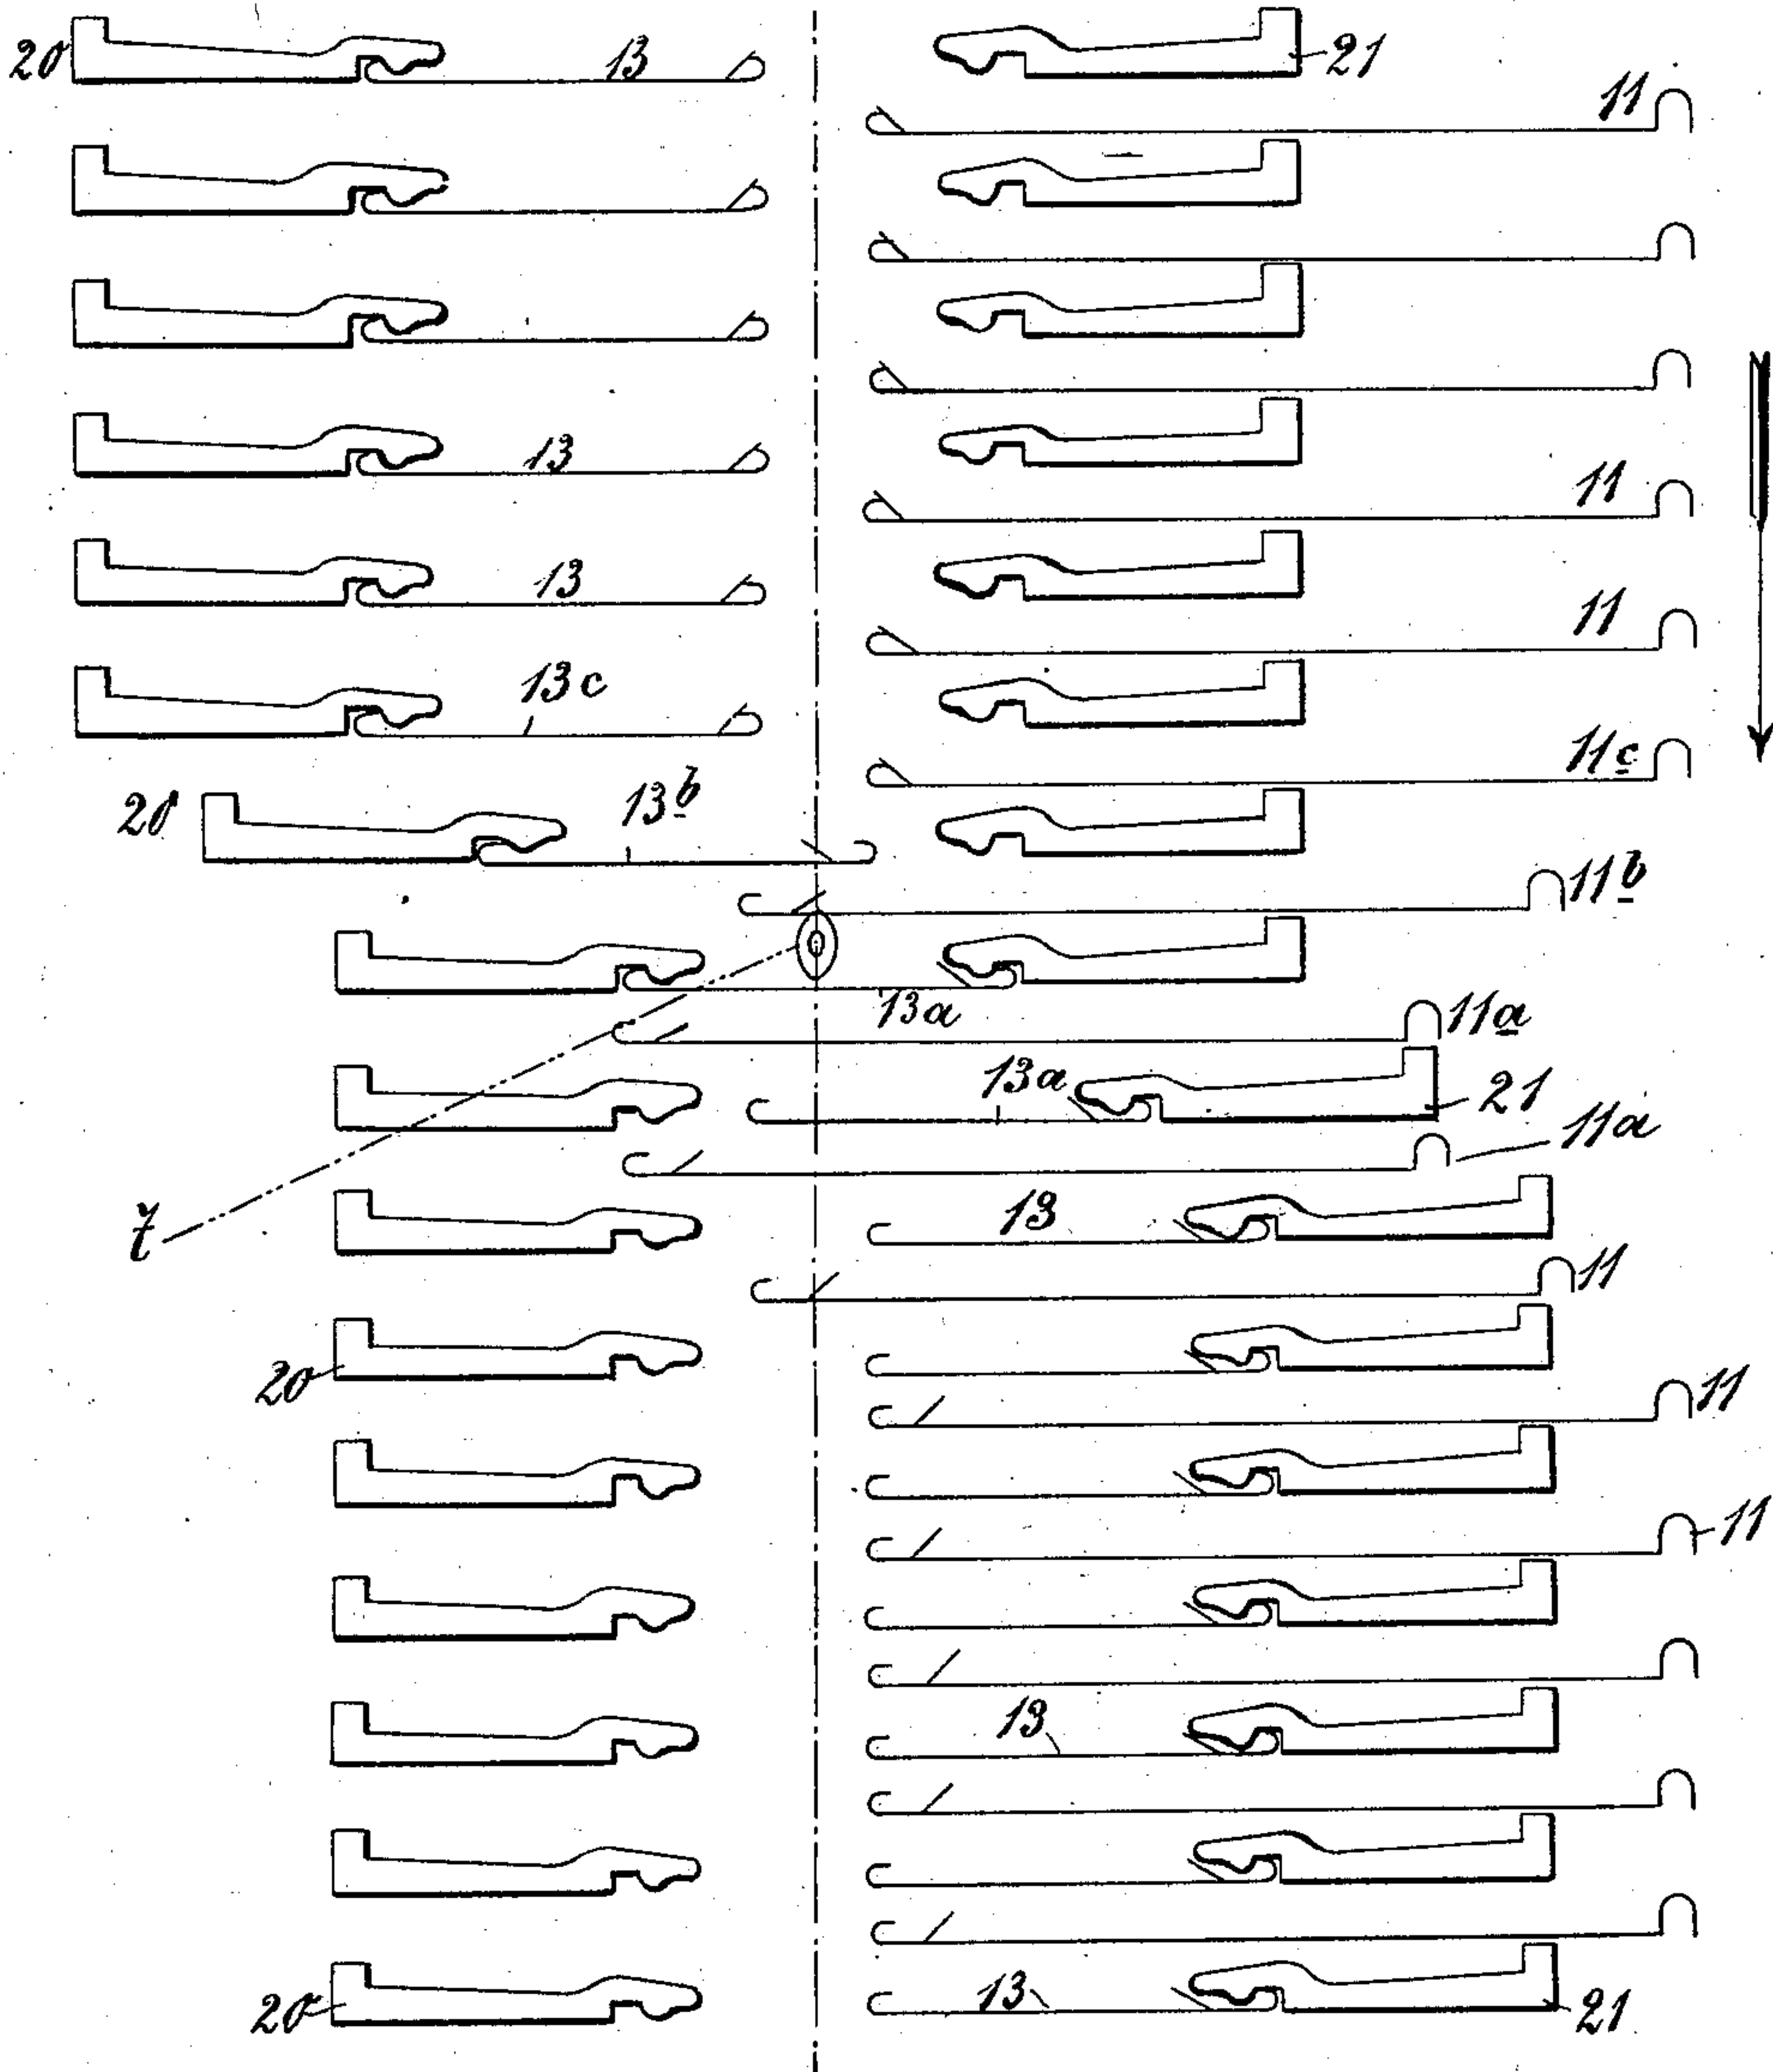 20 13 21
11
13 11
13 11
13c
11c
20 13b
11b
13a
11a
13a 21
11a
7 13
11
20
11
11
13
20 13 21